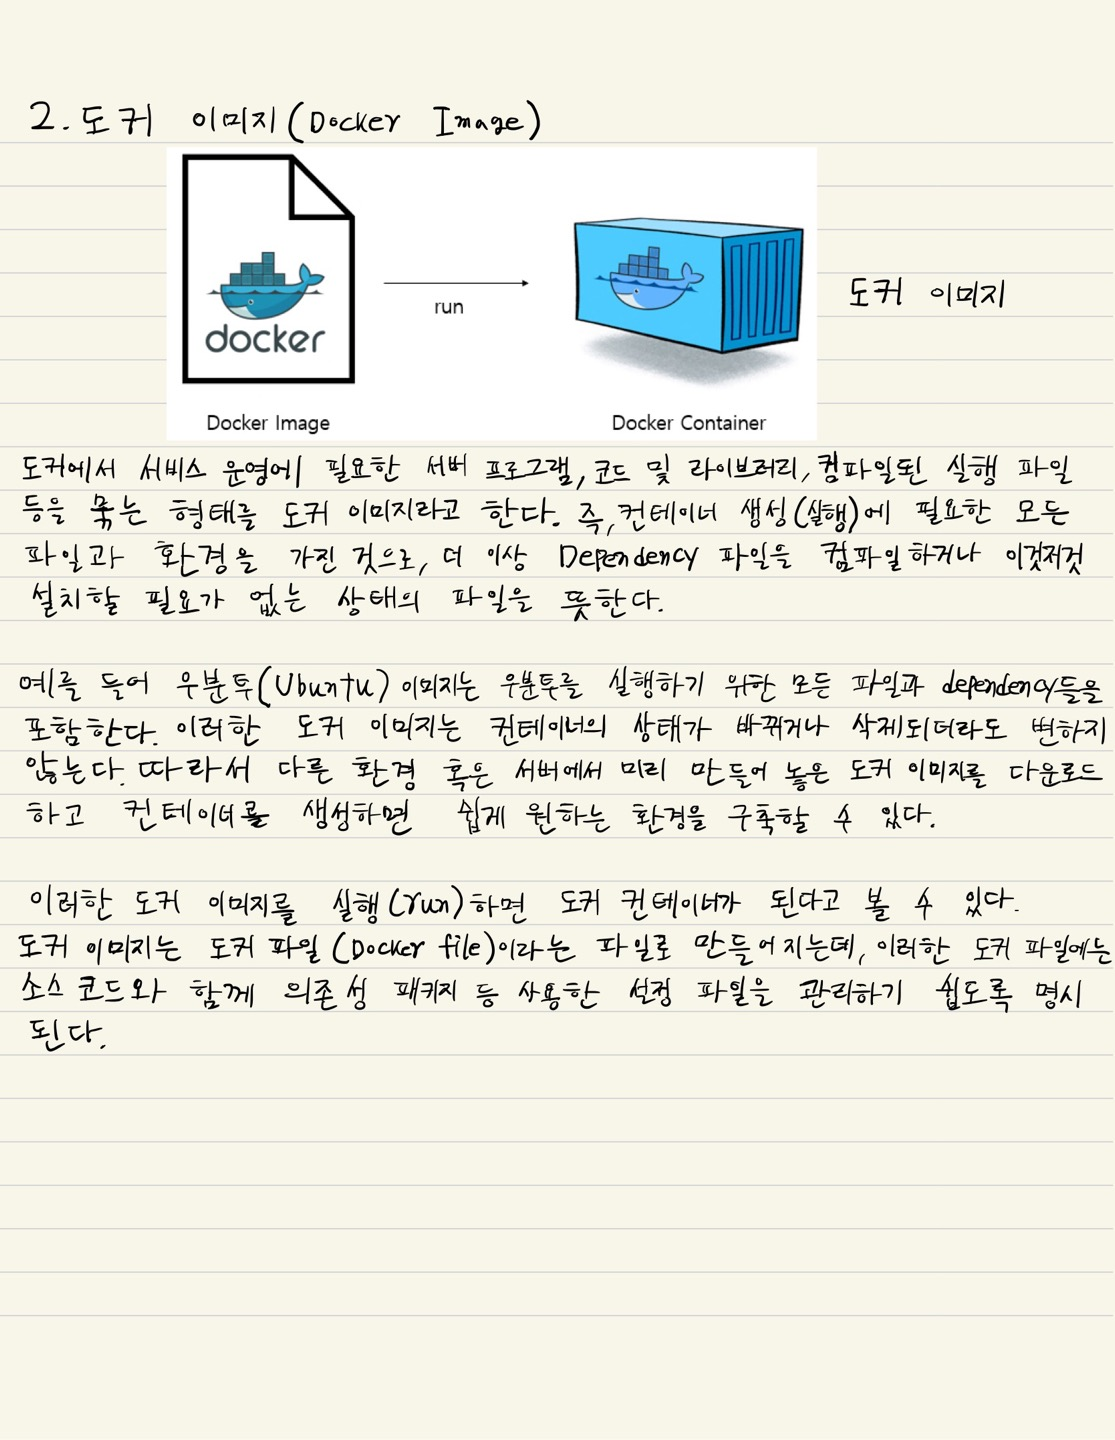 2. 도커 이미지(Docker Image)
docker
run
도커 이미지
Docker Image
Docker Container
도커에서 서비스 운영에 필요한 서버 프로그램, 코드 및 라이브러리, 컴파일된 실행 파일
등을 묶는 형태를 도커 이미지라고 한다. 즉, 컨테이너 생성(실행)에 필요한 모든
파일과 환경을 가진 것으로, 더 이상 Dependency 파일을 컴파일하거나 이것저것
설치할 필요가 없는 상태의 파일을 뜻한다.
예를 들어 우분투(Ubuntu) 이미지는 우분투를 실행하기 위한 모든 파일과 dependency들을
포함한다. 이러한 도커 이미지는 컨테이너의 상태가 바뀌거나 삭제되더라도 변하지
않는다. 따라서 다른 환경 혹은 서버에서 미리 만들어 놓은 도커 이미지를 다운로드
하고 컨테이너를 생성하면 쉽게 원하는 환경을 구축할 수 있다.
이러한 도커 이미지를 실행(run)하면 도커 컨테이너가 된다고 볼 수 있다.
도커 이미지는 도커 파일(Docker file)이라는 파일로 만들어지는데, 이러한 도커 파일에는
소스 코드와 함께 의존성 패키지 등 사용한 설정 파일을 관리하기 쉽도록 명시
된다.